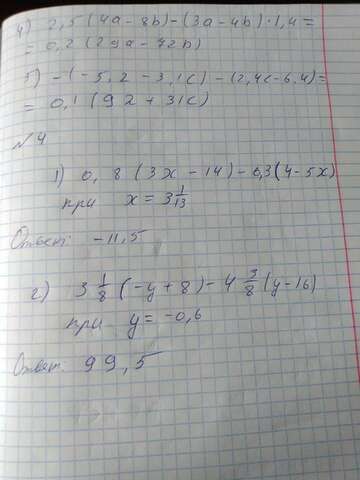 4) 2,5(4a-8b)-(3a-4b)·1,4=
=0,2(29a-72b)
5) -(-5,2-3,1c)-(2,4c-6,4)=
=0,1(92+31c)
№4
1) 0,8(3x-14)-0,3(4-5x)
при x=3 1/13
Ответ: -11,5
2) 3 1/8(-y+8)-4 3/8(y-16)
при y=-0,6
Ответ: 99,5